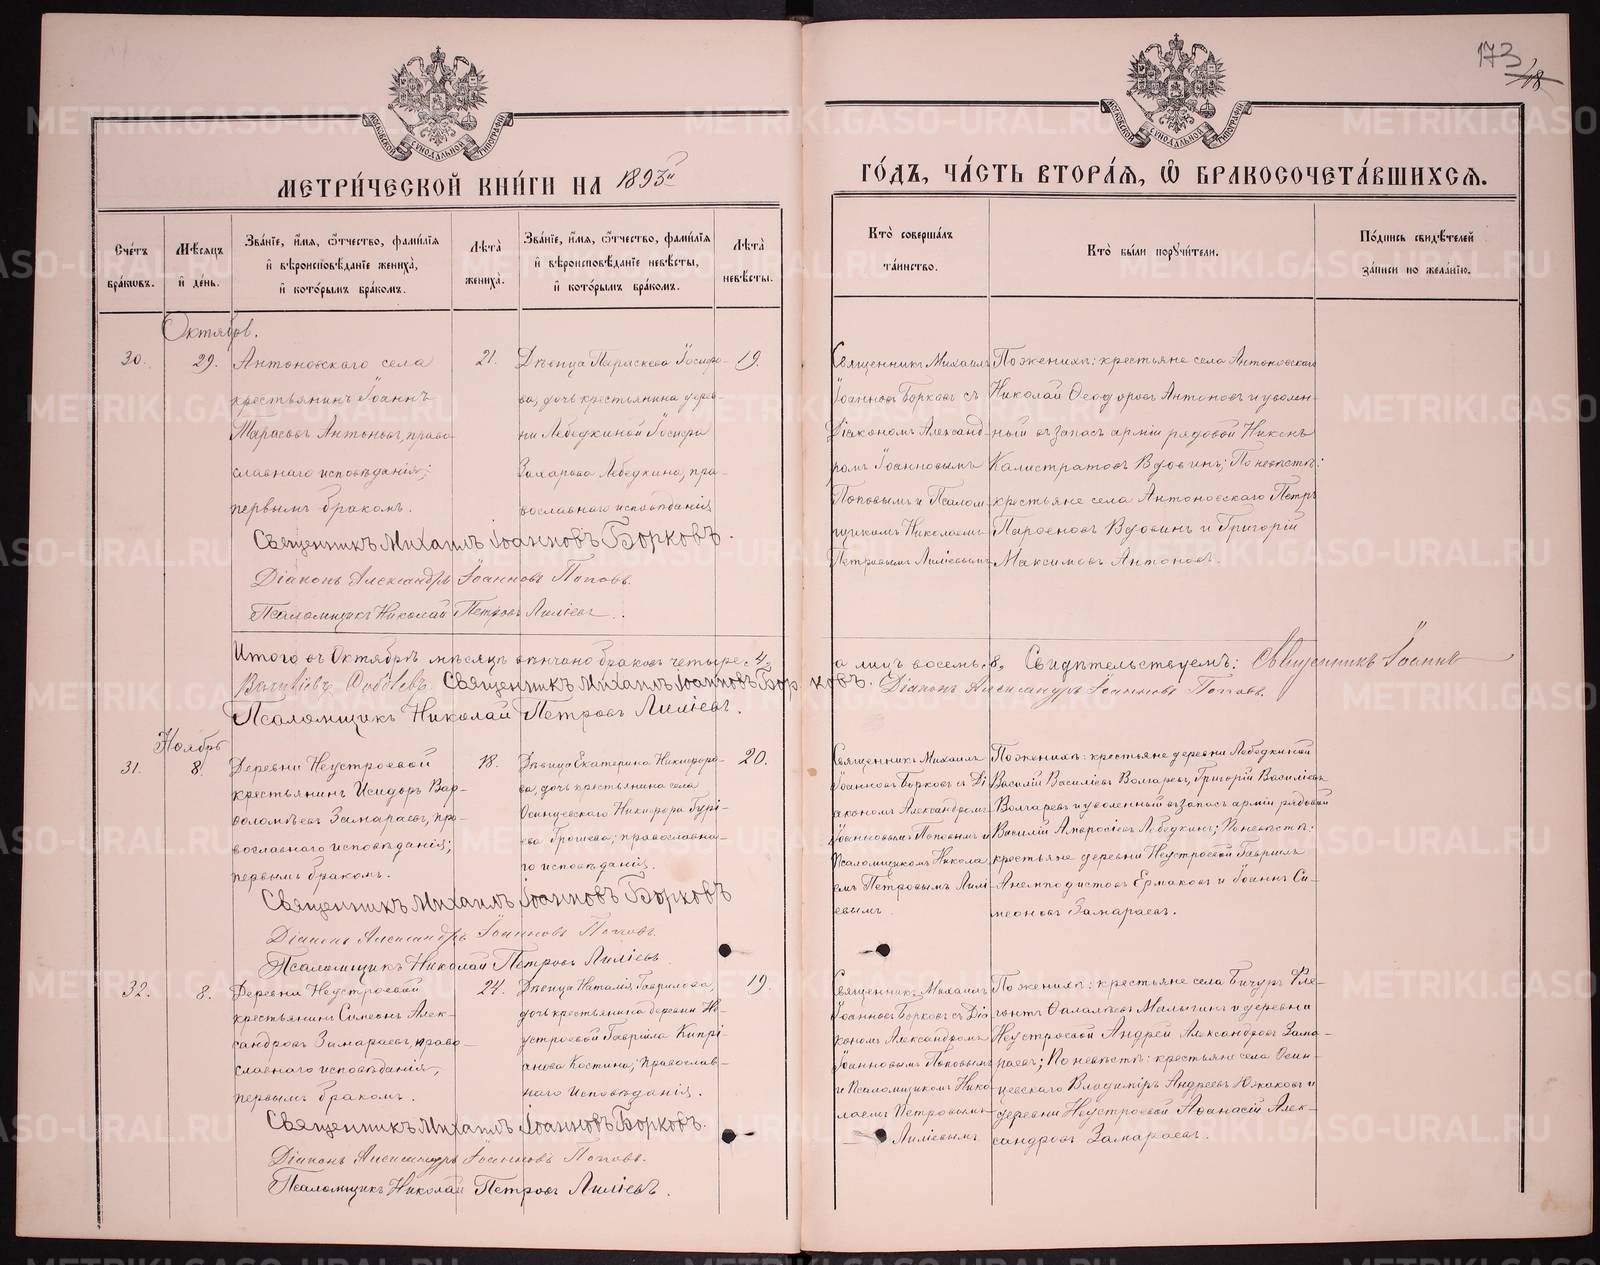 173
18
МЕТРИЧЕСКОЙ КНИГИ НА 1893й
ГОДЪ, ЧАСТЬ ВТОРАЯ, Ѡ БРАКОСОЧЕТАВШИХСЯ.
Счетъ браковъ.
Мѣсяцъ и день.
Званіе, имя, отчество, фамилія и вѣроисповѣданіе жениха, и которымъ бракомъ.
Лѣта жениха.
Званіе, имя, отчество, фамилія и вѣроисповѣданіе невѣсты, и которымъ бракомъ.
Лѣта невѣсты.
Кто совершалъ таинство.
Кто были поручители.
Подпись свидѣтелей записи по желанію.
Октябрь.
30.
29.
Антоновскаго села
крестьянинъ Іоаннъ
Тарасовъ Антоновъ, право-
славнаго исповѣданія;
первымъ бракомъ.
21.
Дѣвица Параскева Іосифо-
ва, дочь крестьянина дерев-
ни Лебедкиной Іосифа
Захарова Лебедкина, пра-
вославнаго исповѣданія
19.
Священникъ Михаилъ
Іоанновъ Борковъ съ
Діакономъ Александ-
ромъ Іоанновымъ
Поповымъ и Псалом-
щикомъ Николаемъ
Петровымъ Лиліевымъ
По женихѣ: крестьяне села Антоновскаго
Николай Ѳеодоровъ Антоновъ и уволен-
ный въ запасъ арміи рядовой Никонъ
Калистратовъ Вдовинъ; По невѣстѣ:
крестьяне села Антоновскаго Петръ
Парѳеновъ Вдовинъ и Григорій
Максимовъ Антоновъ.
Священникъ Михаилъ Іоанновъ Борковъ.
Діаконъ Александръ Іоанновъ Поповъ.
Псаломщикъ Николай Петровъ Лиліевъ.
Итого въ Октябрѣ мѣсяцѣ вѣнчано браковъ четыре 4, а лицъ восемь, 8. Свидѣтельствуемъ: Священникъ Іоаннъ
Священникъ Михаилъ Іоанновъ Борковъ. Діаконъ Александръ Іоанновъ Поповъ.
Псаломщикъ Николай Петровъ Лиліевъ.
Ноябрь
31.
8.
Деревни Неустроевой
крестьянинъ Исидоръ Вар-
ѳоломѣевъ Замараевъ, пра-
вославнаго исповѣданія;
первымъ бракомъ.
18.
Дѣвица Екатерина Никифоро-
ва, дочь крестьянина села
Осинцевскаго Никифора Гурі-
ева Грошева; православна-
го исповѣданія.
20.
Священникъ Михаилъ
Іоанновъ Борковъ съ Ді-
акономъ Александромъ
Іоанновымъ Поповымъ и
Псаломщикомъ Никола-
емъ Петровымъ Лилі-
евымъ
По женихѣ: крестьяне деревни Лебедкиной
Василій Василіевъ Волгаревъ, Григорій Василіевъ
Волгаревъ и уволенный въ запасъ арміи рядовой
Василій Амвросіевъ Лебедкинъ; По невѣстѣ:
крестьяне деревни Неустроевой Гавріилъ
Анемподистовъ Ермаковъ и Іоаннъ Си-
меоновъ Замараевъ.
Священникъ Михаилъ Іоанновъ Борковъ
Діаконъ Александръ Іоанновъ Поповъ.
Псаломщикъ Николай Петровъ Лиліевъ.
32.
8.
Деревни Неустроевой
крестьянинъ Симеонъ Алек-
сандровъ Замараевъ, право-
славнаго исповѣданія,
первымъ бракомъ.
24.
Дѣвица Наталія Гаврилова,
дочь крестьянина деревни Не-
устроевой Гавріила Кипрі-
анова Костина; православ-
наго исповѣданія.
19.
Священникъ Михаилъ
Іоанновъ Борковъ съ Діа-
кономъ Александромъ
Іоанновымъ Поповымъ
и Псаломщикомъ Нико-
лаемъ Петровымъ
Лиліевымъ
По женихѣ: крестьяне села Бичуръ Фле-
гонтъ и деревни
Неустроевой Андрей Александровъ Зама-
раевъ; По невѣстѣ: крестьяне села Осин-
цевскаго Владиміръ Андреевъ Южаковъ и
деревни Неустроевой Аѳанасій Алек-
сандровъ Замараевъ.
Священникъ Михаилъ Іоанновъ Борковъ.
Діаконъ Александръ Іоанновъ Поповъ.
Псаломщикъ Николай Петровъ Лиліевъ.
METRIKI.GASO-URAL.RU